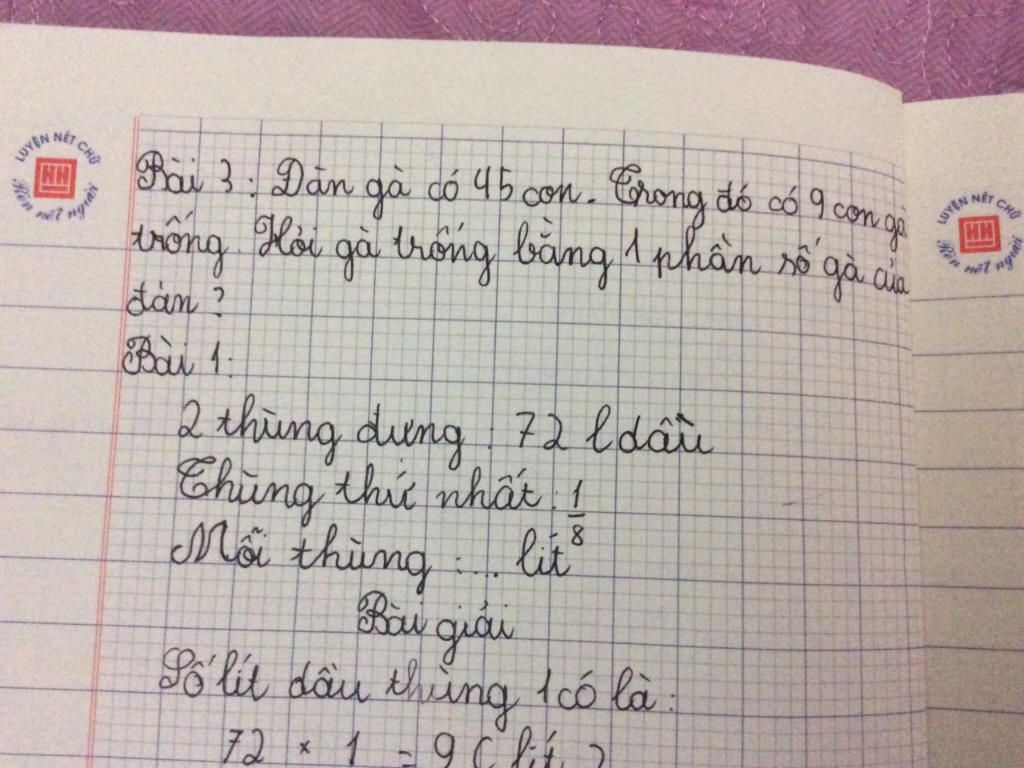 LUYỆN NÉT CHỮ
HH
Rèn nết người
Bài 3: Dàn gà có 45 con. Trong đó có 9 con gà
trống. Hỏi gà trống bằng 1 phần số gà của
đàn?
Bài 1:
2 thùng dựng : 72 l dầu
Thùng thứ nhất : 1/8
Mỗi thùng : ... lít
Bài giải
Số lít dầu thùng 1 có là:
72 × 1 = 9 ( lít )
LUYỆN NÉT CHỮ
HH
Rèn nết người